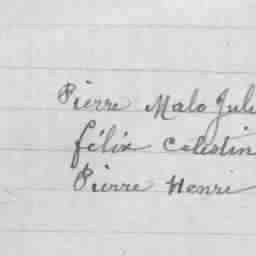 Pierre Malo Jule
félix Celestin
Pierre Henri